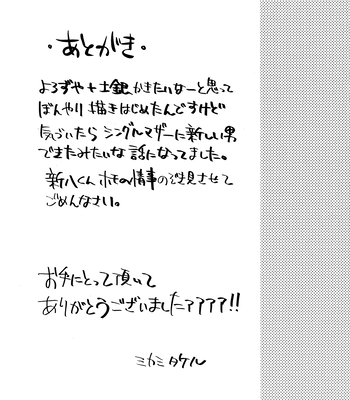 ・あとがき・
よろずや+土銀かきたいなーと思って
ぼんやり描きはじめたんですけど
気づいたらシングルマザーに新しい男
できたみたいな話になってました。
新八くんホモの情事のぞき見させて
ごめんなさい。
お手にとって頂いて
ありがとうございましたァァァァ!!
ミカミタケル